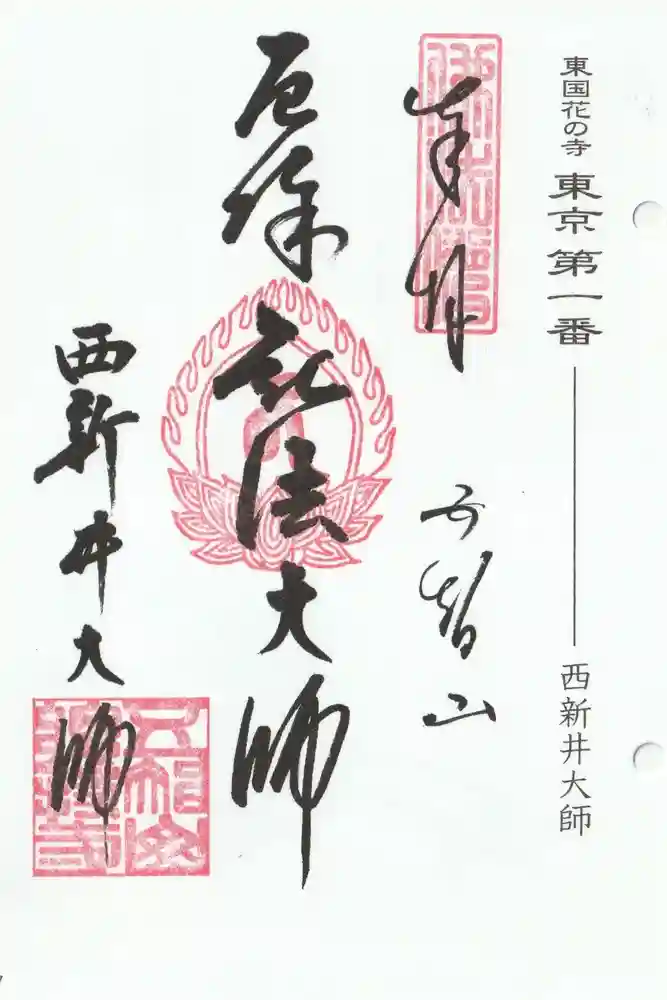 東国花の寺 東京第一番 西新井大師
奉拝
五智山
厄除
弘法大師
西新井大師